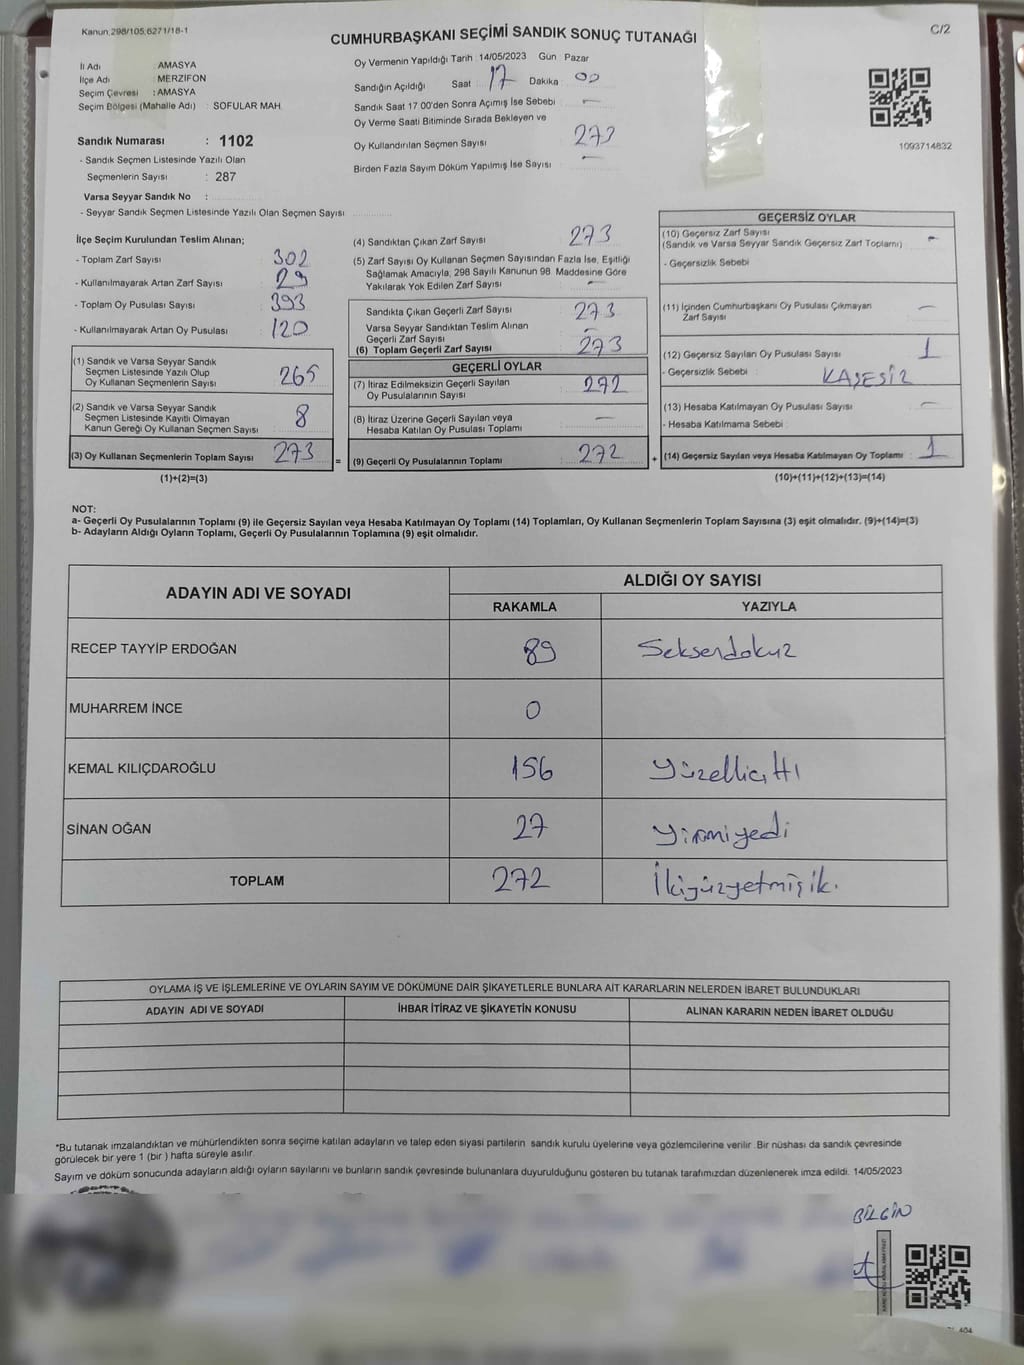 Kanun, 298/105,6271/18-1
CUMHURBAŞKANI SEÇİMİ SANDIK SONUÇ TUTANAĞI
C/2
İl Adı : AMASYA
İlçe Adı : MERZİFON
Seçim Çevresi : AMASYA
Seçim Bölgesi (Mahalle Adı) : SOFULAR MAH
Sandık Numarası : 1102
- Sandık Seçmen Listesinde Yazılı Olan
Seçmenlerin Sayısı : 287
Varsa Seyyar Sandık No :
- Seyyar Sandık Seçmen Listesinde Yazılı Olan Seçmen Sayısı
Oy Vermenin Yapıldığı Tarih 14/05/2023 Gün Pazar
Sandığın Açıldığı Saat 17 Dakika 00
Sandık Saat 17 00'den Sonra Açımış İse Sebebi -
Oy Verme Saati Bitiminde Sırada Bekleyen ve
Oy Kullandırılan Seçmen Sayısı 273
Birden Fazla Sayım Döküm Yapılmış İse Sayısı -
1093714832
İlçe Seçim Kurulundan Teslim Alınan;
- Toplam Zarf Sayısı : 302
- Kullanılmayarak Artan Zarf Sayısı : 29
- Toplam Oy Pusulası Sayısı : 393
- Kullanılmayarak Artan Oy Pusulası : 120
(1) Sandık ve Varsa Seyyar Sandık
Seçmen Listesinde Yazılı Olup
Oy Kullanan Seçmenlerin Sayısı : 265
(2) Sandık ve Varsa Seyyar Sandık
Seçmen Listesinde Kayıtlı Olmayan
Kanun Gereği Oy Kullanan Seçmen Sayısı : 8
(3) Oy Kullanan Seçmenlerin Toplam Sayısı : 273
(1)+(2)=(3)
=
(4) Sandıktan Çıkan Zarf Sayısı : 273
(5) Zarf Sayısı Oy Kullanan Seçmen Sayısından Fazla İse, Eşitliği
Sağlamak Amacıyla, 298 Sayılı Kanunun 98 Maddesine Göre
Yakılarak Yok Edilen Zarf Sayısı : -
Sandıkta Çıkan Geçerli Zarf Sayısı : 273
Varsa Seyyar Sandıktan Teslim Alınan
Geçerli Zarf Sayısı : -
(6) Toplam Geçerli Zarf Sayısı : 273
GEÇERLİ OYLAR
(7) İtiraz Edilmeksizin Geçerli Sayılan
Oy Pusulalarının Sayısı : 272
(8) İtiraz Üzerine Geçerli Sayılan veya
Hesaba Katılan Oy Pusulası Toplamı : -
(9) Geçerli Oy Pusulalarının Toplamı : 272
+
GEÇERSİZ OYLAR
(10) Geçersiz Zarf Sayısı
(Sandık ve Varsa Seyyar Sandık Geçersiz Zarf Toplamı) : -
- Geçersizlik Sebebi
(11) İçinden Cumhurbaşkanı Oy Pusulası Çıkmayan
Zarf Sayısı : -
(12) Geçersiz Sayılan Oy Pusulası Sayısı : 1
- Geçersizlik Sebebi : KAŞESİZ
(13) Hesaba Katılmayan Oy Pusulası Sayısı : -
- Hesaba Katılmama Sebebi :
(14) Geçersiz Sayılan veya Hesaba Katılmayan Oy Toplamı : 1
(10)+(11)+(12)+(13)=(14)
NOT:
a- Geçerli Oy Pusulalarının Toplamı (9) ile Geçersiz Sayılan veya Hesaba Katılmayan Oy Toplamı (14) Toplamları, Oy Kullanan Seçmenlerin Toplam Sayısına (3) eşit olmalıdır. (9)+(14)=(3)
b- Adayların Aldığı Oyların Toplamı, Geçerli Oy Pusulalarının Toplamına (9) eşit olmalıdır.
ADAYIN ADI VE SOYADI
ALDIĞI OY SAYISI
RAKAMLA YAZIYLA
RECEP TAYYİP ERDOĞAN 89 Seksendokuz
MUHARREM İNCE 0
KEMAL KILIÇDAROĞLU 156 Yüzellialtı
SİNAN OĞAN 27 Yirmiyedi
TOPLAM 272 İkiyüzyetmişik.
OYLAMA İŞ VE İŞLEMLERİNE VE OYLARIN SAYIM VE DÖKÜMÜNE DAİR ŞİKAYETLERLE BUNLARA AİT KARARLARIN NELERDEN İBARET BULUNDUKLARI
ADAYIN ADI VE SOYADI İHBAR İTİRAZ VE ŞİKAYETİN KONUSU ALINAN KARARIN NEDEN İBARET OLDUĞU
*Bu tutanak imzalandıktan ve mühürlendikten sonra seçime katılan adayların ve talep eden siyasi partilerin sandık kurulu üyelerine veya gözlemcilerine verilir. Bir nüshası da sandık çevresinde
görülecek bir yere 1 (bir ) hafta süreyle asılır.
Sayım ve döküm sonucunda adayların aldığı oyların sayılarını ve bunların sandık çevresinde bulunanlara duyurulduğunu gösteren bu tutanak tarafımızdan düzenlenerek imza edildi. 14/05/2023
BİLGİN